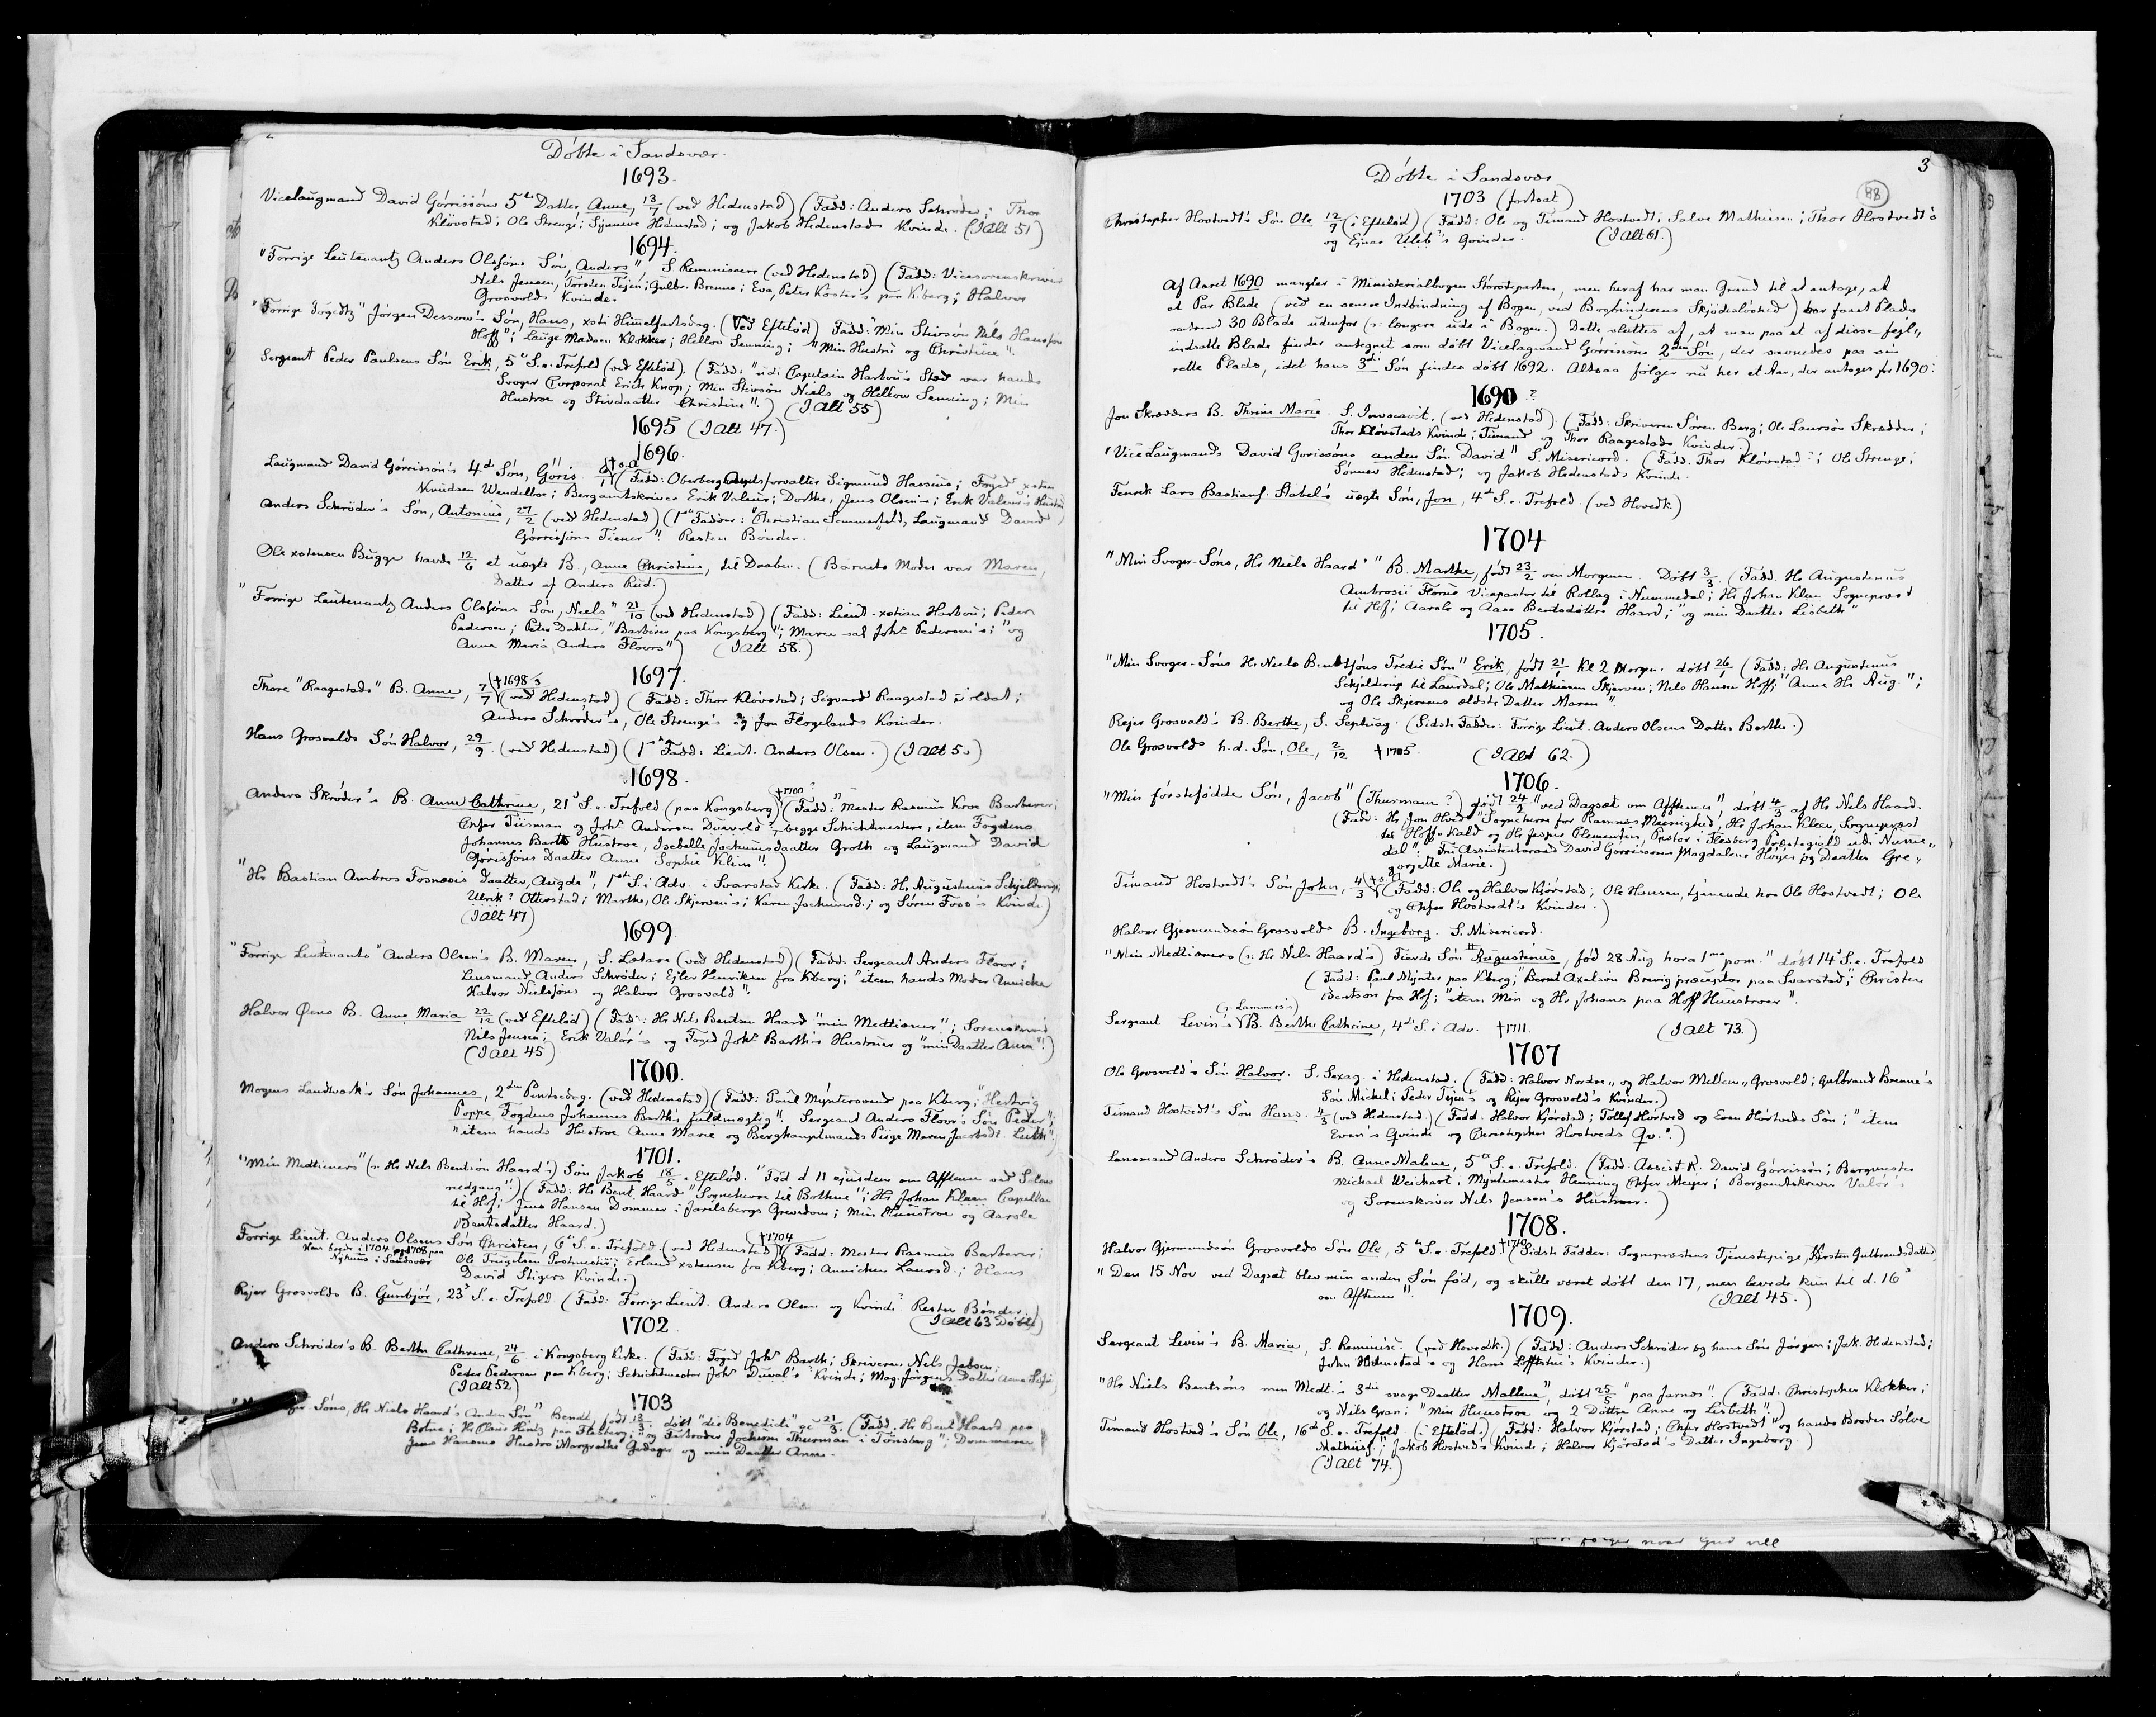 2
Döbte i Sandsvær.
1693.
Vicelaugmand David Görrisöns 5te Datter Anne, 13/7 (ved Hedenstad) (Fadd: Anders Schröder; Thor
Klövstad; Ole Strenge; Synneve Hedenstad; og Jakob Hedenstads Kvinde. (I Alt 51)
1694.
"Forrige Leutenantz Anders Olsföns Sön, Anders", S. Reminiscere (ved Hedenstad) (Fadd: Vicesorenskriver
Nels Jensen, Torsten Tejen; Gulbr. Brenne; Eva, Peter Koster's paa Kberg; Halvor
Grosvolds Kvinde.
"Forrige Fogedtz" Jörgen Dessow's Sön, Hans, xsti Himelfartsdag. (Ved Eftelöd) Fadd: "Min Stivsön Nils Hansön
Hoff"; Lauge Madsen Klokker; Hellow Senning; "Min Hustru og Christine".
Sergeant Peder Paulsens Sön Erik, 5te S. e. Trefold (ved Eftelöd). (Fadd: "udi Capitain Harbou's Sted var hands
Svoger Corporal Erich Knop; Min Stivsön Niels og Hellow Senning; Min
Hustroe og Stivdaatter Christine".) (I Alt 55)
1695 (I Alt 47.)
1696.
Laugmand David Görrisson's 4de Sön, Görris 6/1 (Fadd: Oberbergamtsforvalter Sigmund Hassius; Foged xsten
Knudsen Wendelboe; Bergamtskriver Erik Valeur; Dorthe, Jens Olsen's; Erik Valeur's Hustru
Anders Schröder's Sön, Antonius, 27/2 (ved Hedenstad) (1ste Fadder: "Christian Sommerfeld, Laugmand David
Görrissöns Tiener". Resten Bönder.
Ole xstensen Bugge havde 12/6 et uægte B., Anne Christine, til Daaben. (Barnets Moder var Maren,
Datter af Anders Rud.)
"Forrige Leutenantz Anders Olsföns Sön, Niels" 21/10 (ved Hedenstad) (Fadd: Lieut. xstian Harbou; Peder
Pedersen; Peter Dakter, "Barberer paa Kongsberg"; Maren sal Johs Pedersen's; "og
Anna Maria Anders Floors") (I Alt 58.)
1697.
Thore "Raagestads" B. Anne, 7/7 (†1698/3 (ved Hedenstad) (Fadd: Thor Klövstad; Sigvard Raagestad;
Anders Schröder's, Ole Strenge's og Jon Flogelands Kvinder.
Hans Grosvolds Sön Halvor, 29/9 (ved Hedenstad) (1ste Fadd: Lieut. Anders Olsen.) (I Alt 5.)
1698.
Anders Skröder's B. Anne Cathrine, 21de S. e. Trefold (paa Kongsberg) †1700? (Fadd: "Mester Rasmus Kroe Barberer;
Chfer Tiisman og Johs Andersen Duevold, begge Schichtmestere, item Fogdens
Johannes Barths Hustroe, Isebelle Jochumsdaatter Groth og Laugmand David
Görrisföns Daatter Anne Sophie Klim".)
"Hr Bastian Ambros Fosnæsis Daatter, Augde", 1ste S. i Adv. i Svarstad Kirke. (Fadd: Hr Augustinus Schjelderup;
Ulrik? Otterstad; Marthe, Ole Skjerven's; Karen Jochumsd.; og Sören Foss's Kvinde)
(I Alt 47)
1699
"Forrige Leutenants" Anders Olsen's B. Maren, S. Lætare (ved Hedenstad) (Fadd: Sergeant Anders Floor;
Lensmand Anders Schröder; Ejler Henriksen fra Kberg; "item hands Moder Annicke
Halvor Nielsföns og Halvor Grosvold".
Halvor Öens B. Anne Maria 22/12 (ved Eftelöd) (Fadd: Hr Nels Bentsen Haard "min Medtiener"; Sorenskriver
Nels Jensen; Erik Valör's og Foged Johs Barth's Hustruer og "min Daatter Anne".)
(I Alt 45)
1700.
Mogens Landvark's Sön Johannes, 2den Pentsedag. (ved Hedenstad) (Fadd: Paul Myntersvend paa Kberg; "Hertvig
Poppe Fogdens Johannes Barth's fuldmægtig". Sergeant Anders Floor's Sön Peder";
"item hands Hustroe Anne Marie og Berghauptmands Peige Maren Jacobsdt. Luth".
1701.
"Min Medtieners" (: Hr Nels Bentsön Haard's) Sön Jakob 18/5 i Eftelöd. "Föd d 11 ejusdem om Afftenen ved Solens
nedgang".) (Fadd: Hr Bent Haard "Sogneherre til Bothne"; Hr Johan Kleen Capellan
til Hof; Jens Hansen Dommer i Jarlsbergs Grevedom; Min Hunstroe og Aarsle
Bentsdatter Haard.)
Forrige Lieut. Anders Olsens Sön Christen, 6te S. e. Trefold. (ved Hedenstad) †1704 (Fadd: Mester Rasmus Barberer;
Han boede i 1704 og 1708 paa
Nyhuus i Sandsvær
Ole Truegelsen Postmester; Erland xstensen fra Kberg; Annichen Laursd.; Hans
David Stigers Kvinde.)
Rejer Grosvolds B. Gunbjör, 23de S. e. Trefold (Fadd: Forrige Lieut. Anders Olsen og Kvinde. Resten Bönder.)
(I Alt 63 Döbte)
1702.
Anders Schröder's B. Berthe Cathrine, 24/6 i Kongsberg Kirke. (Fadd: Foged Johs Barth; Skriveren Nels Jebsen;
Peder Pedersen paa Kberg; Schichtmester Johs Duval's Kvinde; Mag. Jörgens Datter Anne Sofie)
(I Alt 52)
1703
Söns, Hr Niels Haard's Anden Sön" Bendt, födt 13/3, döbt "die Benedicti" 21/3. (Fadd. Hr Bent Haard paa
Botne; Hr Claus Hintz paa Flesberg; "og Futroder Jochum Thurman i Tönsberg"; Dommeren
Jens Hansens Hustru Margrethe Gedager og min Daatter Anne.
3
88
Döbte i Sandsvær
1703 (fortsat)
Christopher Hostvedt's Sön Ole 12/9 (i Eftelöd) (Fadd: Ole og Timand Hostvedt; Salve Mathiesen; Thor Hostvedt's
og Ejnar Uleb's Qvinder. (I Alt 61.)
Af Aaret 1690 mangler i Ministerialbogen Störsteparten, men heraf har man Grund til at antage, at
et Par Blade (ved en senere Indbinding af Bogen, ved Bogbinderens Skjödeslöshed) har faaet Plads
omtrent 30 Blade udenfor (: længere ude i Bogen.) Dette sluttes af, at man paa et af disse fejl,,
indsatte Blade finder antegnet som döbt Vicelagmand Görrisöns 2den Sön, der savnedes paa sin
rette Plads, idet hans 3die Sön findes döbt 1692. Altsaa fölger nu her et Aar, der antages for 1690:
1690?
Jon Skrædders B. Threne Marie. S. Invocavit. (ved Hedenstad). (Fadd: Skriveren Sören Berg; Ole Laursön Skrædder;
Thor Klövstads Kvinde; Timand og Thor Raagestads Kvinder.)
"ViceLaugmands David Gorissöns anden Sön David" S. Misericord. (Fadd. Thor Klövstad; Ole Strenge;
Sönnev Hedenstad; og Jakob Hedenstads Kvinde.
Fenrik Lars Bastianf. Stabel's uægte Sön, Jon, 4de S. e. Trefold. (ved Hovedk.)
1704
"Min Svoger-Söns, Hr Niels Haard's" B. Marthe, födt 23/2 om Morgenen. Döbt 3/3. (Fadd. Hr Augustinus
Ambrosii Flornes Vicepastor til Rollag i Nummedal; Hr Johan Kleen Sognepræst
til Hof; Aarsle og Aase Bentsdöttre Haard; "og min Daatter Lisbeth"
1705.
"Min Svoger-Söns Hr Niels Bendtsöns Tredie Sön" Erik, födt 21/1 Kl 2 Morgen. döbt 26/1 (Fadd: Hr Augustinus
Schjelderup til Laurdal; Ole Mathiesen Skjerven; Nels Hansen Hoff; "Anne Hr Aug.";
og Ole Skjervens ældste Datter Maren".
Rejer Grosvold's B. Berthe, S. Septuag. (Sidste Fadder: Forrige Lieut. Anders Olsens Datter Berthe.)
Ole Grosvolds h.d. Sön, Ole, 2/12 †1705. (I Alt 62.)
1706.
"Min förstefödde Sön, Jacob" (Thurmann?) födt 24/2 "ved Dagsæt om Afftenen", döbt 4/3 af Hr Nels Haard.
(Fadd: Hr Jon Hövds "Sogneherre for Ramnæs Meenighed, Hr Johan Kleen, Sognepræst
til Hoffs Kald og Hr Jesper Clementin, Pastor i Flesberg Præstegield udi Numme,,
dal". Fru Assistentraad David Görrisons Magdalene Höyer og Daatter Gre,,
gorjette Marie.)
Timand Hostvedt's Sön John, 4/3 (Fadd: Ole og Halvor Kjörstad; Ole Hansen, tjenende hos Ole Hostvedt; Ole
og Chfer Hostvedt's Kvinder.)
Halvor Gjermundsön Grosvolds B. Ingeborg. S. Misericord.
"Min Medtieners (: Hr Nels Haard's) Fierde Sön "Augustinus, föd 28 Aug hora 1ma pom." döbt 14de S. e. Trefold
(Fadd: Paul Mynter paa Kberg; "Bernt Axelsön Brevig præceptor paa Svarstad"; Christen
Bentsön fra Hof; "item Min og Hr Johans paa Hoff Hunstroer".
(: Lammers's)
Sergeant Levin's B. Berthe Cathrine, 4de S. i Adv. †1711. (I Alt 73.)
1707
Ole Grosvold's Sön Halvor. S. Sexag. i Hedenstad. (Fadd: Halvor Nordre,, og Halvor Mellem,, Grosvold; Gulbrand Brenne's
Sön Mickel; Peder Tejen's og Rejer Grosvold's Kvinder.)
Timand Hostvedt's Sön Hans. 4/3 (ved Hedenstad.) (Fadd: Halvor Kjörstad; Tollef Hostved og Even Hostveds Sön; "item
Even's Qvinde og Christopher Hostveds Qv.".)
Lensmand Anders Schröder's B. Anne Malene, 5te S. e. Trefold. (Fadd. Assist R. David Görrisson; Bergmester
Michael Weichart, Myntemester Henning Chfer Meyer; Bergamtskriver Valör's
og Sorenskriver Nels Jensen's Hustruer.)
1708.
Halvor Gjermundsön Grosvolds Sön Ole, 5te S. e. Trefold †1710. (Sidste Fadder: Sognepræstens Tjenestepige, Kirstin Gulbrandsdatter)
"Den 15 Nov ved Dagsæt blev min anden Sön föd, og skulle været döbt den 17, men levede kun til d. 16de
om Afftenen". (I Alt 45.)
1709.
Sergeant Levin's B. Maria, S. Reminisc. (ved Hovedk.) (Fadd: Anders Schröder og hans Sön Jörgen; Jak. Hedenstad;
John Hedenstad's og Hans Lofftshus's Kvinder.)
"Hr Niels Bentsöns min Medt.'s 3die svage Daatter Mallene", döbt 25/5 "paa Jarnæs". (Fadd. Christopher Klokker;
og Nels Gran; "Min Hunstroe og 2 Döttre Anne og Lisbeth".)
Timand Hostved's Sön Ole, 16de S. e. Trefold (i Eftelöd.) (Fadd: Halvor Kjörstad; Chfer Hostvedt "og hands Broder Sölve
Mathiesf."; Jakob Hostved's Kvinde; Halvor Kjörstad's Datter Ingeborg.)
(I Alt 74.)